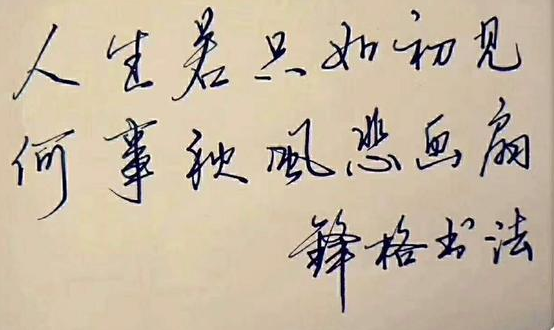 人生若只如初见
何事秋风悲画扇
锋格书法